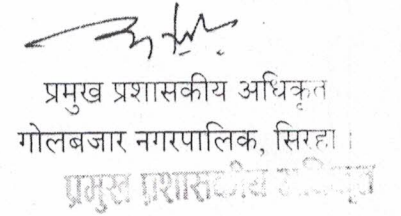 प्रमुख प्रशासकीय अधिकृत
गोलबजार नगरपालिक, सिरहा ।
प्रमुख प्रशासकीय अधिकृत